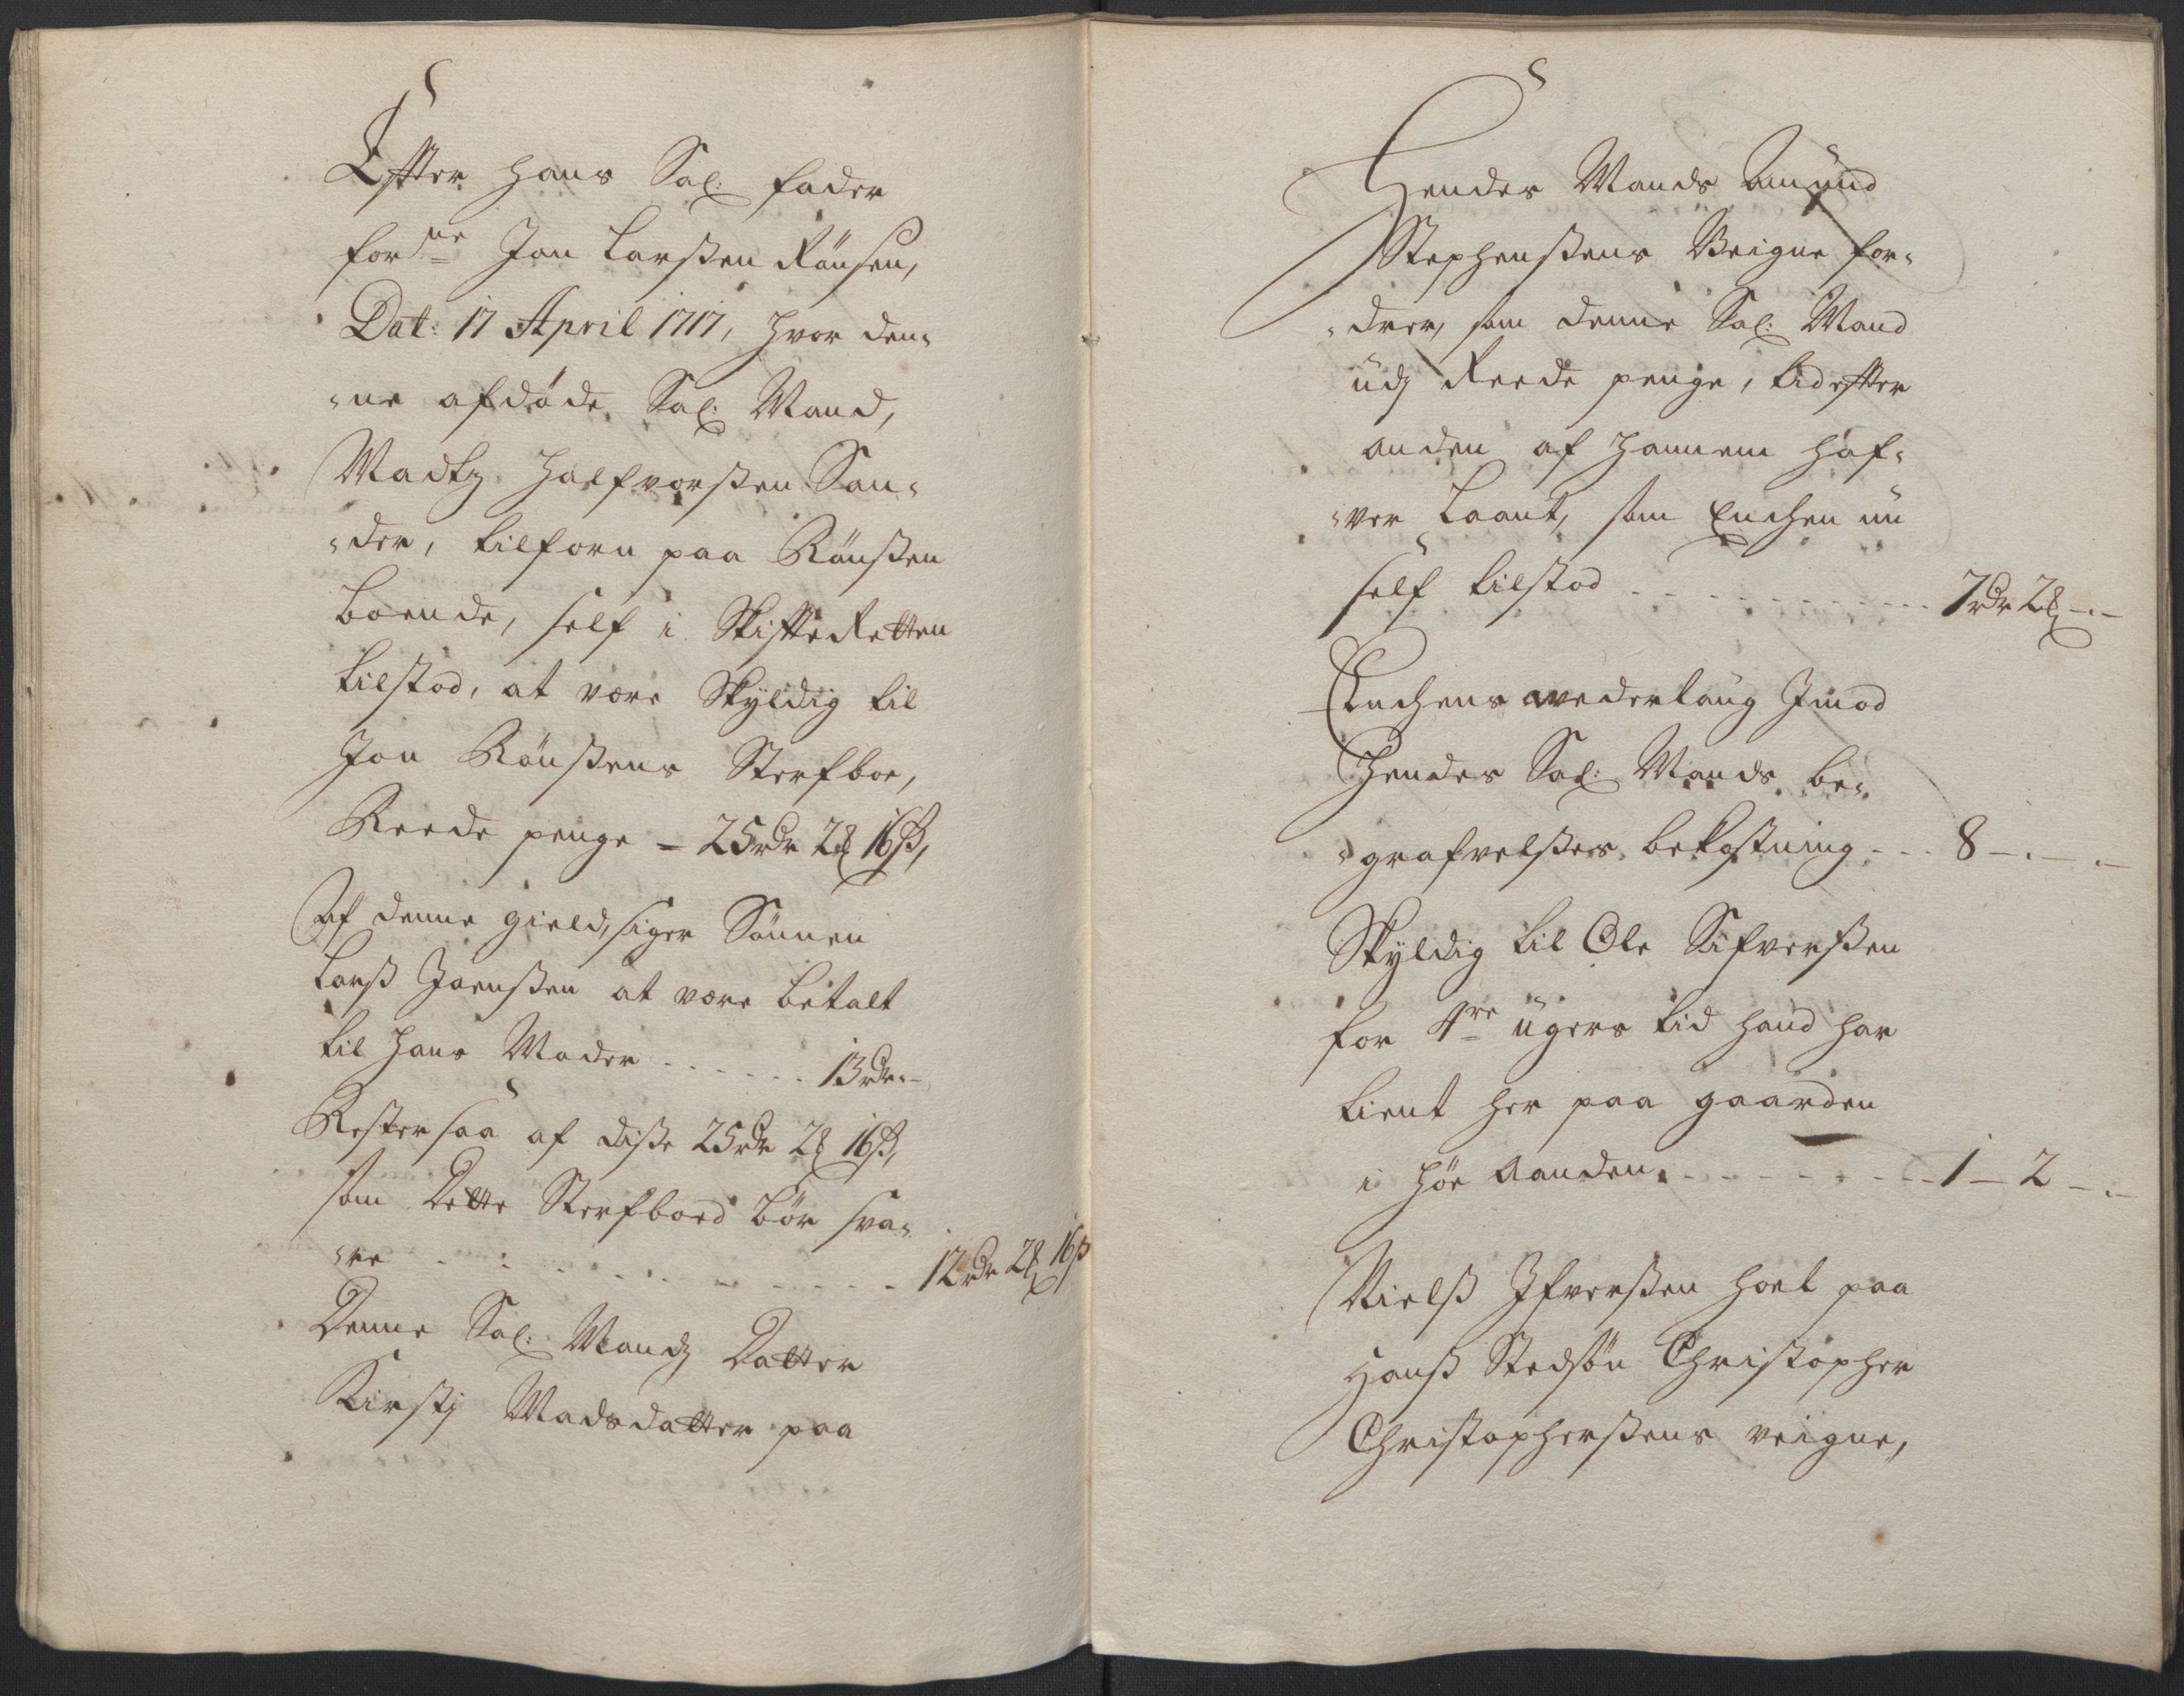 Effter hans Sal: fader
for.ne Jon Larssen Rønsen,
Dat: 17 April 1717, hvor den¬
¬ne afdøde Sal: Mand,
Madtz Halfvorssen San¬
¬der, tilforn paa Rønssen
boende, self i Skiffte Retten
tilstod, at være Skyldig til
Jon Rønssens Sterfboe,
Reede penge - 25 rdr 2 ₰ 16 ß,
Af denne gield, siger Sønnen
Larss Joenssen at være betalt
til hans Moder ...... 13 rdr.-
Rester saa af disse 25 rdr 2 ₰ 16 ß,
som Dette Sterfboed bør sva¬
¬re .......... 12 rdr 2 ₰ 16 ß
Denne Sal: Mandz Datter
Kirstj Madsdatter paa
Hendes Mands Amund
Stephenssens Veigne for¬
¬drer, som denne Sal: Mand
udj Reede penge, tid effter
anden af hannem haf¬
¬ver Laant, som Enchen nu
self tilstod .......... 7 rdr 2 ₰ -.-
Enchens vederlaug Imod
Hendes Sal: Mands be¬
¬grafvelsses bekostning ... 8 -.-.-
Skyldig til Ole Sifverssen
for 4re ugers tid hand har
tient her paa gaarden
i Høe Aanden ......... 1 - 2 -.-
Nielss Ifverssen Hoel paa
Hanss Stedsøn Christopher
Christopherssens veigne,